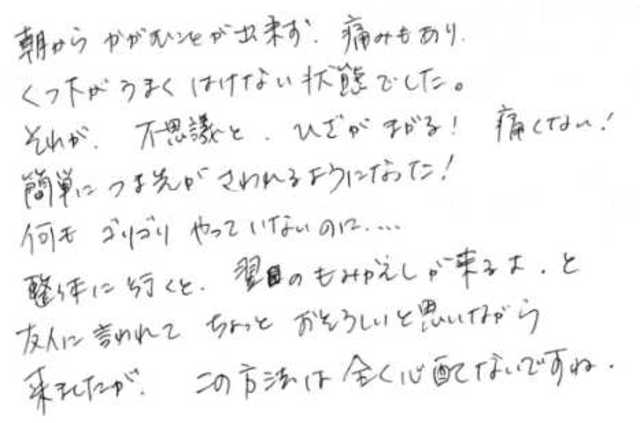 朝から かがむことが出来ず、痛みもあり、
くつ下がうまく はけない状態でした。
それが、不思議と、ひざが まがる! 痛くない!
簡単に つま先が さわれるようになった!
何も ゴリゴリ やっていないのに‥‥
整体に行くと、翌日のもみかえしが来るよ、と
友人に言われて ちょっと おそろしいと思いながら
来ましたが、この方法は全く心配ないですね。